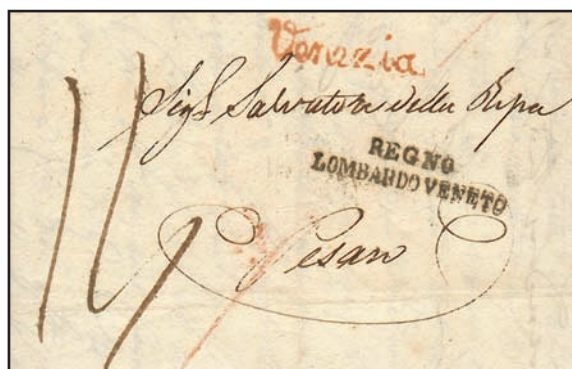 Venezia
Sig.r Salvatore della Ripa
REGNO
LOMBARDO VENETO
Pesaro